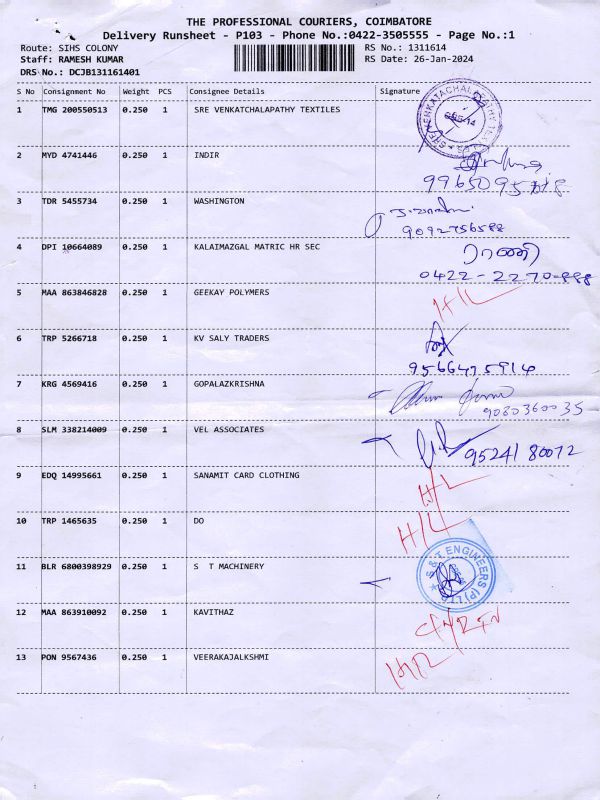 THE PROFESSIONAL COURIERS, COIMBATORE
Delivery Runsheet - P103 - Phone No.:0422-3505555 - Page No.:1
Route: SIHS COLONY RS No.: 1311614
Staff: RAMESH KUMAR RS Date: 26-Jan-2024
DRS No.: DCJB131161401
S No Consignment No Weight PCS Consignee Details Signature
1 TMG 200550513 0.250 1 SRE VENKATCHALAPATHY TEXTILES
SRE VENKATACHALAPATHY
2 MYD 4741446 0.250 1 INDIR
3 TDR 5455734 0.250 1 WASHINGTON
9092756588
4 DPI 10664089 0.250 1 KALAIMAZGAL MATRIC HR SEC ராணி
0422-2270888
5 MAA 863846828 0.250 1 GEEKAY POLYMERS H/L
6 TRP 5266718 0.250 1 KV SALY TRADERS
9566475914
7 KRG 4569416 0.250 1 GOPALAZKRISHNA
9080360035
8 SLM 338214009 0.250 1 VEL ASSOCIATES
9524180072
9 EDQ 14995661 0.250 1 SANAMIT CARD CLOTHING H/L
10 TRP 1465635 0.250 1 DO H/L
11 BLR 6800398929 0.250 1 S T MACHINERY
S & T ENGINEERS (P) LTD
12 MAA 863910092 0.250 1 KAVITHAZ
13 PON 9567436 0.250 1 VEERAKAJALKSHMI